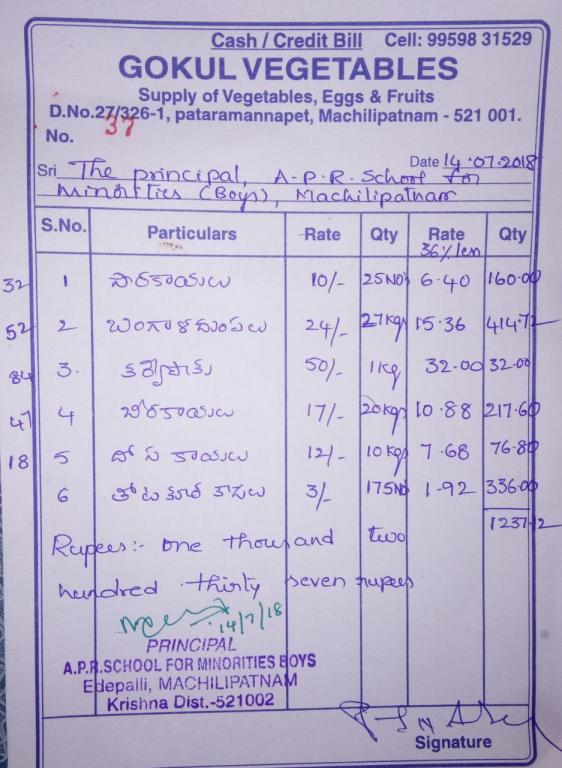 Cash / Credit Bill Cell: 99598 31529
GOKUL VEGETABLES
Supply of Vegetables, Eggs & Fruits
D.No.27/326-1, pataramannapet, Machilipatnam - 521 001.
No. 37
Date 14.07.2018
Sri The principal, A.P.R. School for
Minorities (Boys), Machilipatnam
S.No. Particulars Rate Qty Rate 36% less Qty
32 1 సొరకాయలు 10/- 25NOs 6.40 160.00
52 2 బంగాళదుంపలు 24/- 27kgs 15.36 414.72
84 3. కర్వేపాకు 50/- 1kg 32.00 32.00
47 4 బీరకాయలు 17/- 20kgs 10.88 217.60
18 5 దోసకాయలు 12/- 10kgs 7.68 76.80
6 తోటకూర కాడలు 3/- 175NO 1.92 336.00
1237.12
Rupees:- one thousand two
hundred thirty seven rupees
14/7/18
PRINCIPAL
A.P.R.SCHOOL FOR MINORITIES BOYS
Edepalli, MACHILIPATNAM
Krishna Dist.-521002
Signature